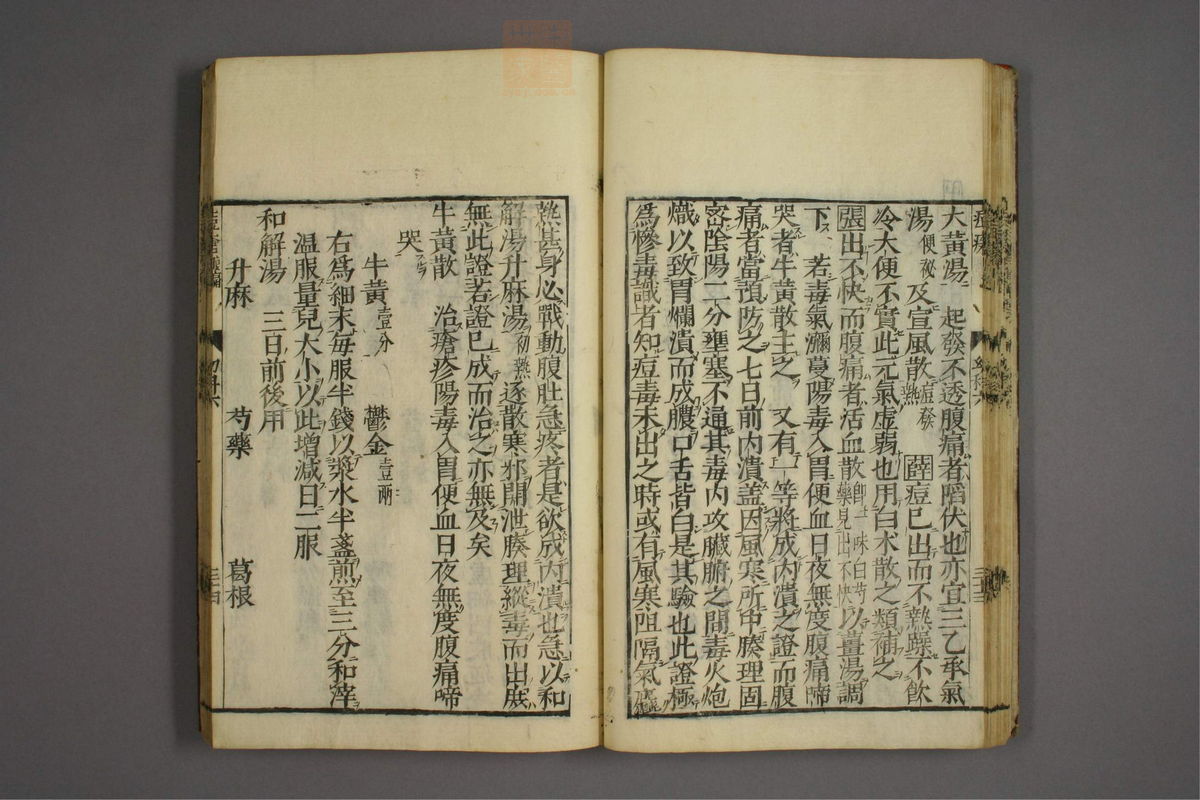 大黃湯 起發不透腹痛者䧟伏也亦宜三乙承氣
湯便祕及宣風散痘發熱 薛痘已出而不熱躁不飲
冷大便不實此元氣虚弱也用白朮散之類補之
張出不快而腹痛者活血散即一味白芍藥見出不快以薑湯調
下 若毒氣瀰蔓陽毒入胃便血日夜無度腹痛啼
哭者牛黃散主之 又有一等將成内潰之證而腹
痛者當預防之七日前内潰盖因風寒所中腠理固
密陰陽二分壅塞不通其毒内攻臟腑之間毒火炮
熾以致胃爛潰而成膿口舌皆白是其驗也此證極
爲慘毒識者知痘毒未出之時或有風寒阻隔氣麤
熱甚身必戰動腹肚急疼者是欲成内潰也急以和
解湯升麻湯初熱逐散寒邪開泄腠理縱毒而出庶
無此證若證已成而治之亦無及矣
牛黃散 治瘡疹陽毒入胃便血日夜無度腹痛啼
哭
牛黃壹分 鬱金壹兩
右爲細末每服半錢以漿水半盞煎至三分和滓
温服量兒大小以此增減日二服
和解湯 三日前後用
升麻 芍藥 葛根